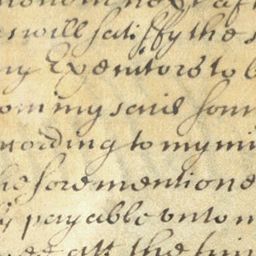 will satisfy the
my Executors to b
om my said sonn
cording to my mi
beforementione
ly payable unto m
att the tim